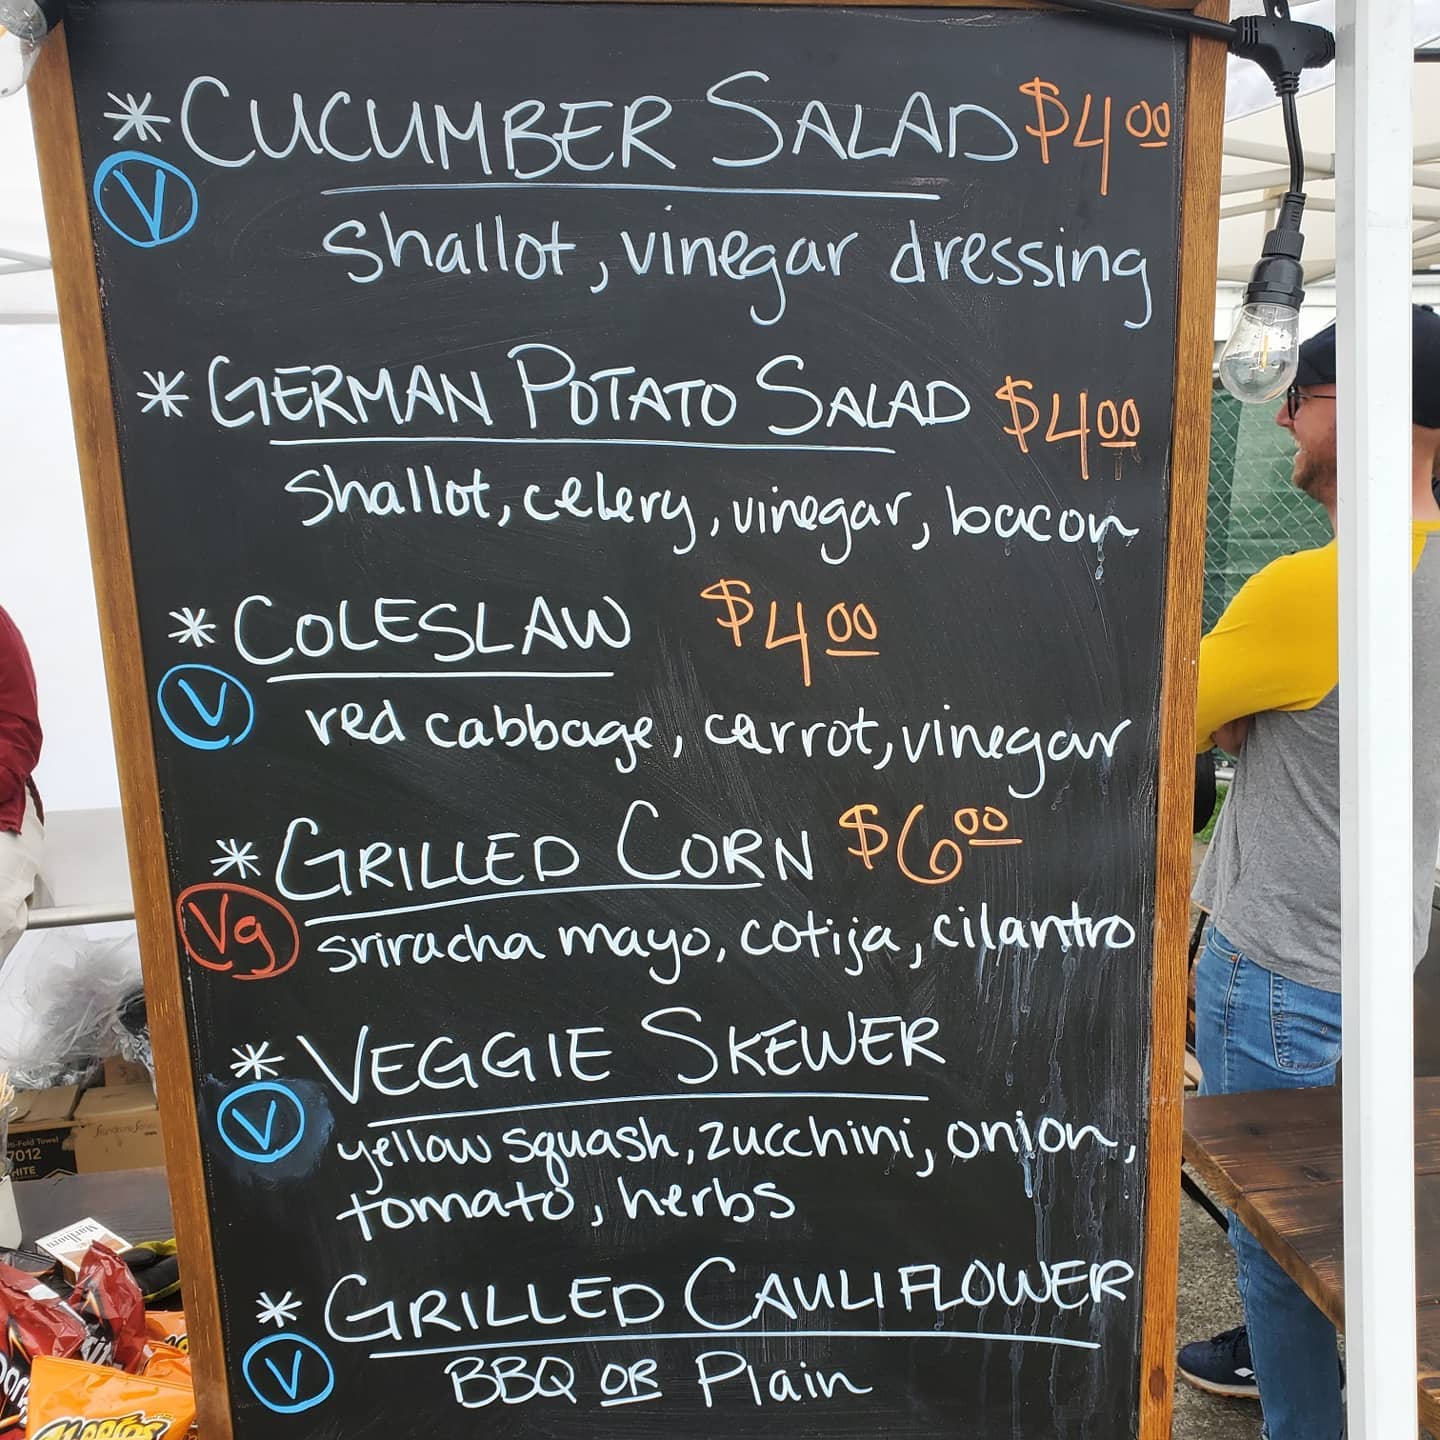 * CUCUMBER SALAD $4.00
V
shallot, vinegar dressing
* GERMAN POTATO SALAD $4.00
shallot, celery, vinegar, bacon
* COLESLAW $4.00
V
red cabbage, carrot, vinegar
* GRILLED CORN $6.00
Vg
sriracha mayo, cotija, cilantro
* VEGGIE SKEWER
V
yellow squash, zucchini, onion,
tomato, herbs
* GRILLED CAULIFLOWER
V
BBQ OR Plain
Multi-Fold Towel
7012
WHITE
Marlboro